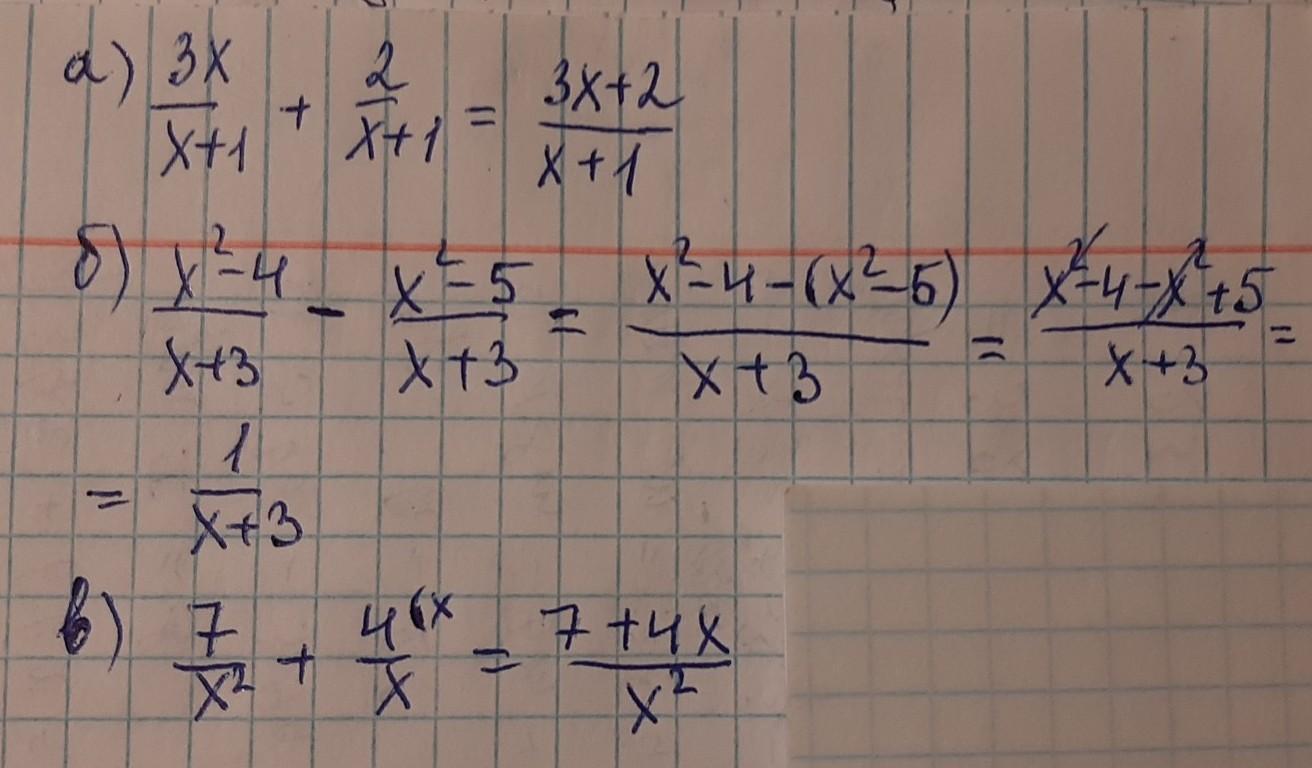 а) 3x/(x+1) + 2/(x+1) = (3x+2)/(x+1)
б) (x²-4)/(x+3) - (x²-5)/(x+3) = (x²-4-(x²-5))/(x+3) = (x²-4-x²+5)/(x+3) =
= 1/(x+3)
в) 7/x² + 4⁽ˣ/x = (7+4x)/x²